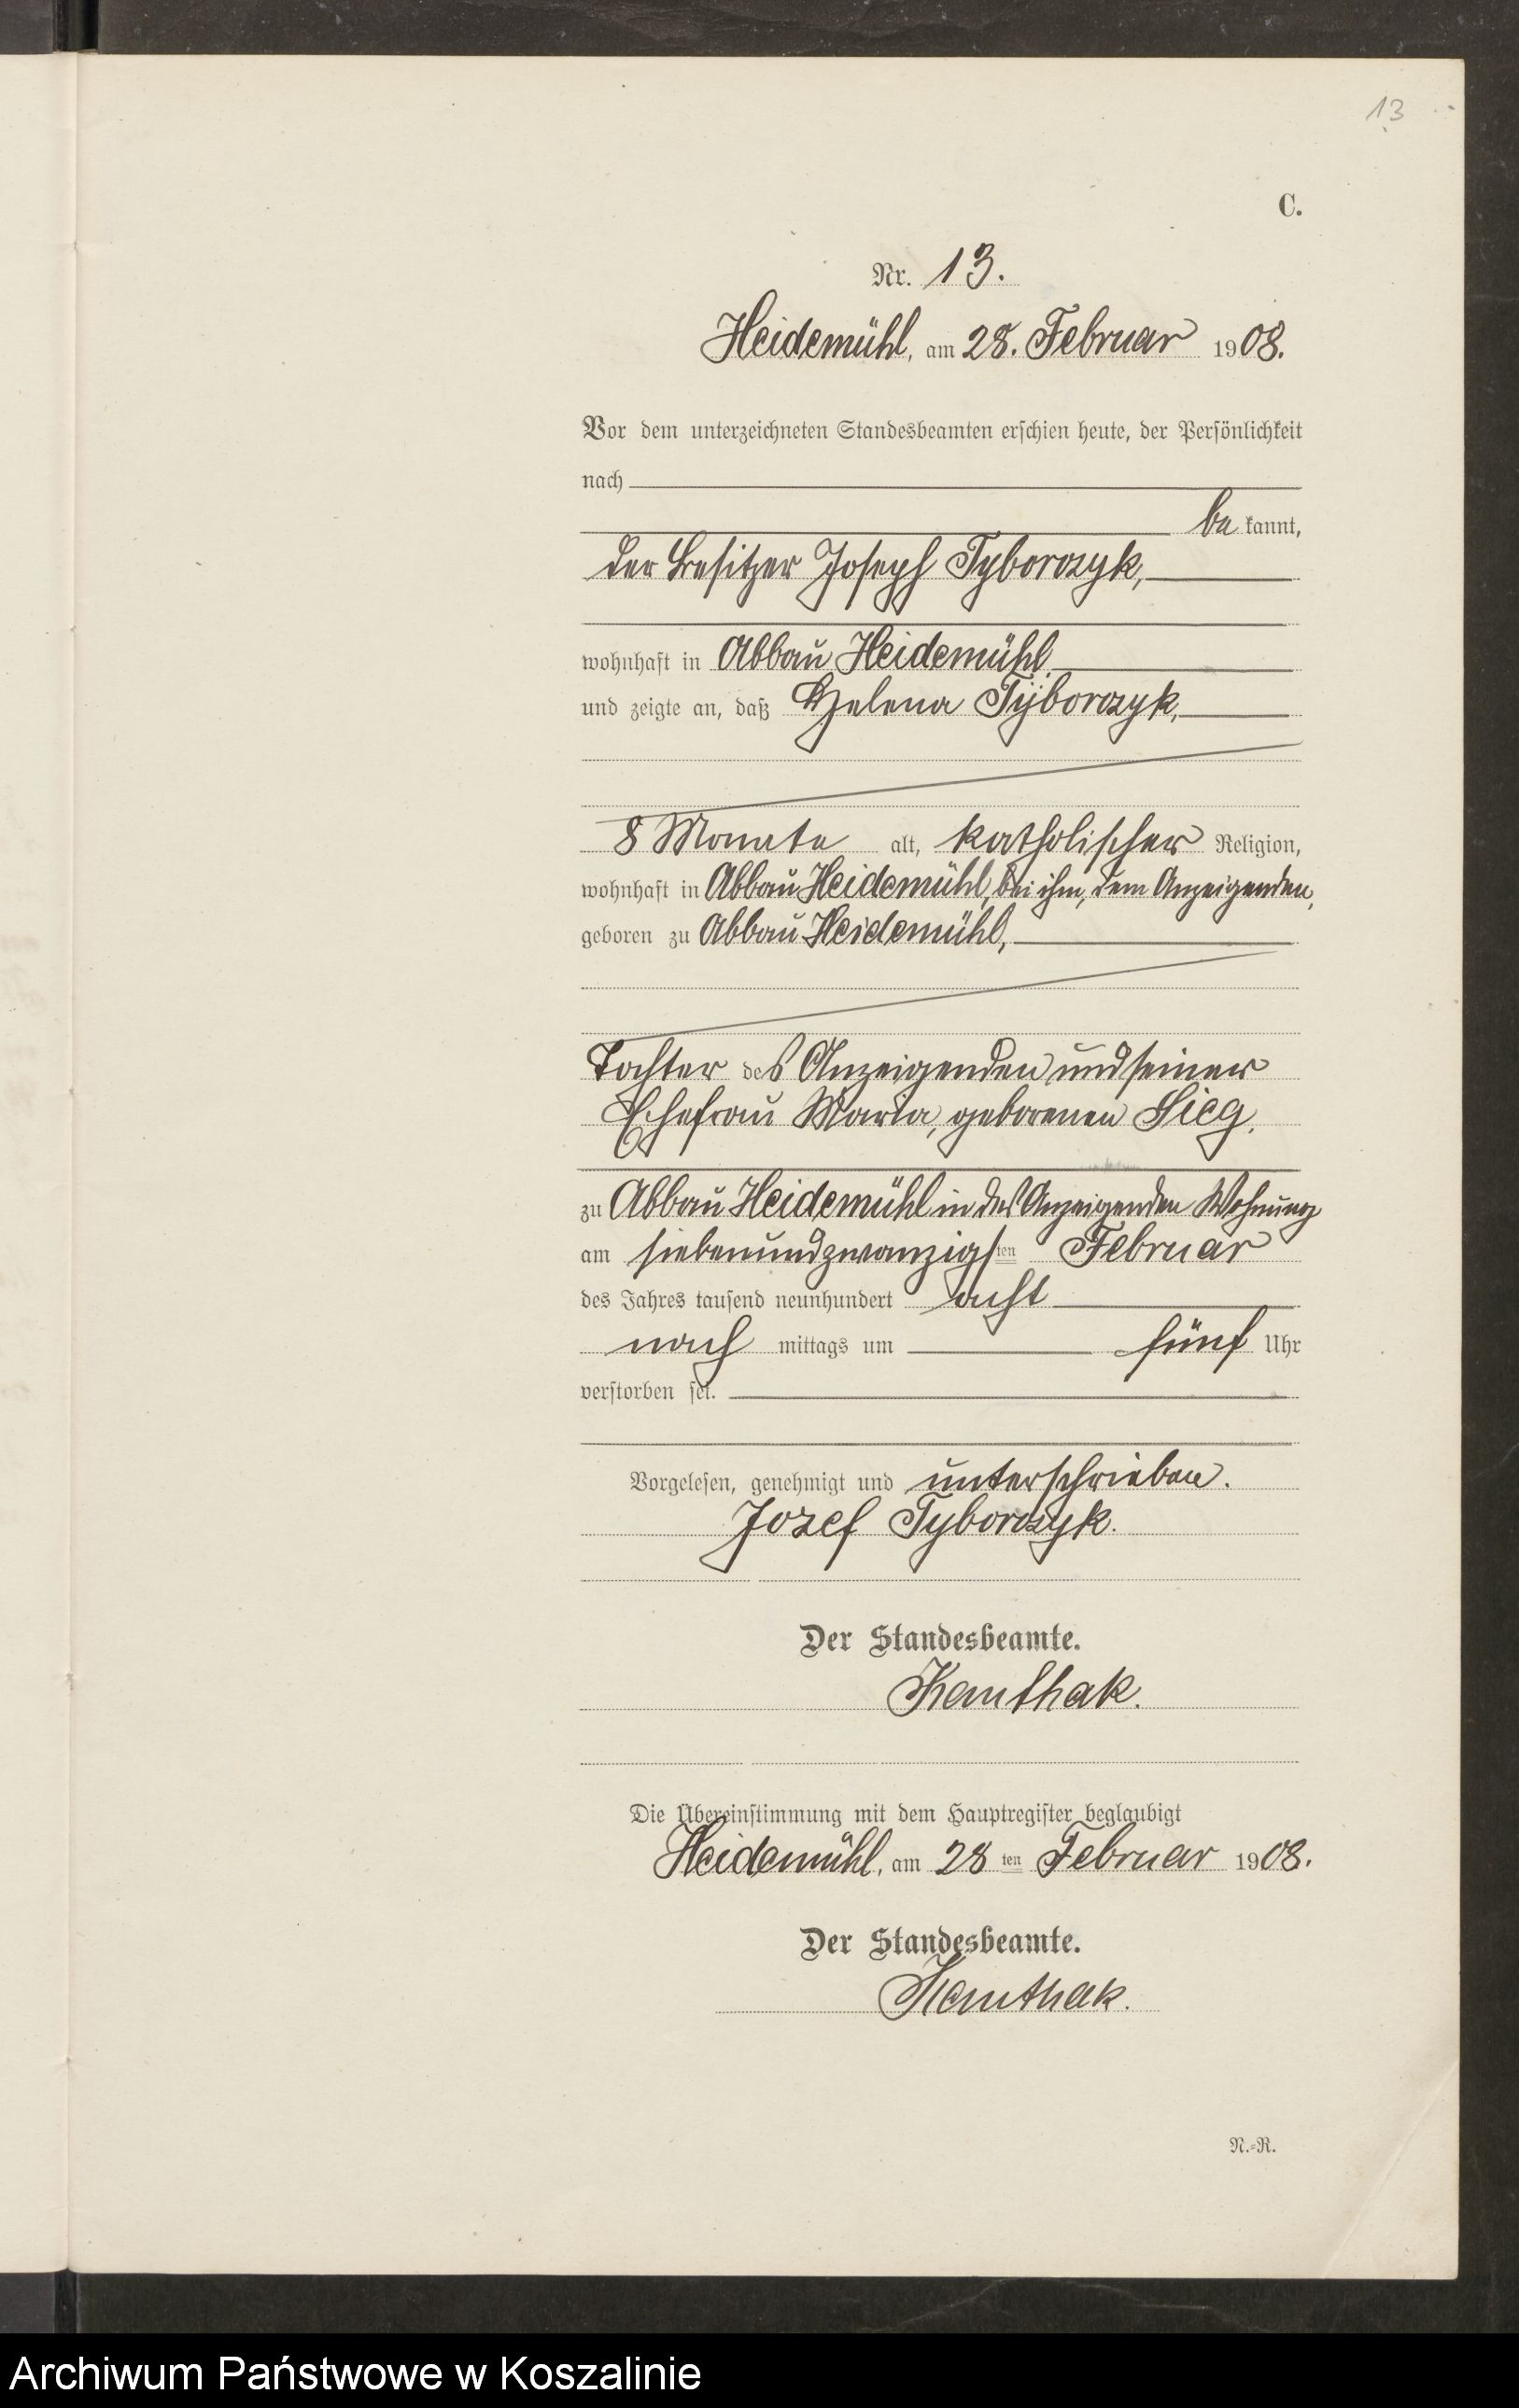 13
C.
Nr. 13.
Heidemühl, am 28. Februar 1908.
Vor dem unterzeichneten Standesbeamten erschien heute, der Persönlichkeit
nach
be kannt,
der Besitzer Joseph Tyborczyk,
wohnhaft in Abbau Heidemühl
und zeigte an, daß Helena Tyborczyk,
8 Monate alt, katholischer Religion,
wohnhaft in Abbau Heidemühl, bei ihm, dem Anzeigenden,
geboren zu Abbau Heidemühl,
Tochter des Anzeigenden und seiner
Ehefrau Maria, geborenen Sieg.
zu Abbau Heidemühl in des Anzeigenden Wohnung
am siebenundzwanzigsten Februar
des Jahres tausend neunhundert acht
nach mittags um fünf Uhr
verstorben sei.
Vorgelesen, genehmigt und unterschrieben.
Jozef Tyborczyk.
Der Standesbeamte.
Kauthak.
Die Übereinstimmung mit dem Hauptregister beglaubigt
Heidemühl, am 28 ten Februar 1908.
Der Standesbeamte.
Kauthak.
N.-R.
Archiwum Państwowe w Koszalinie